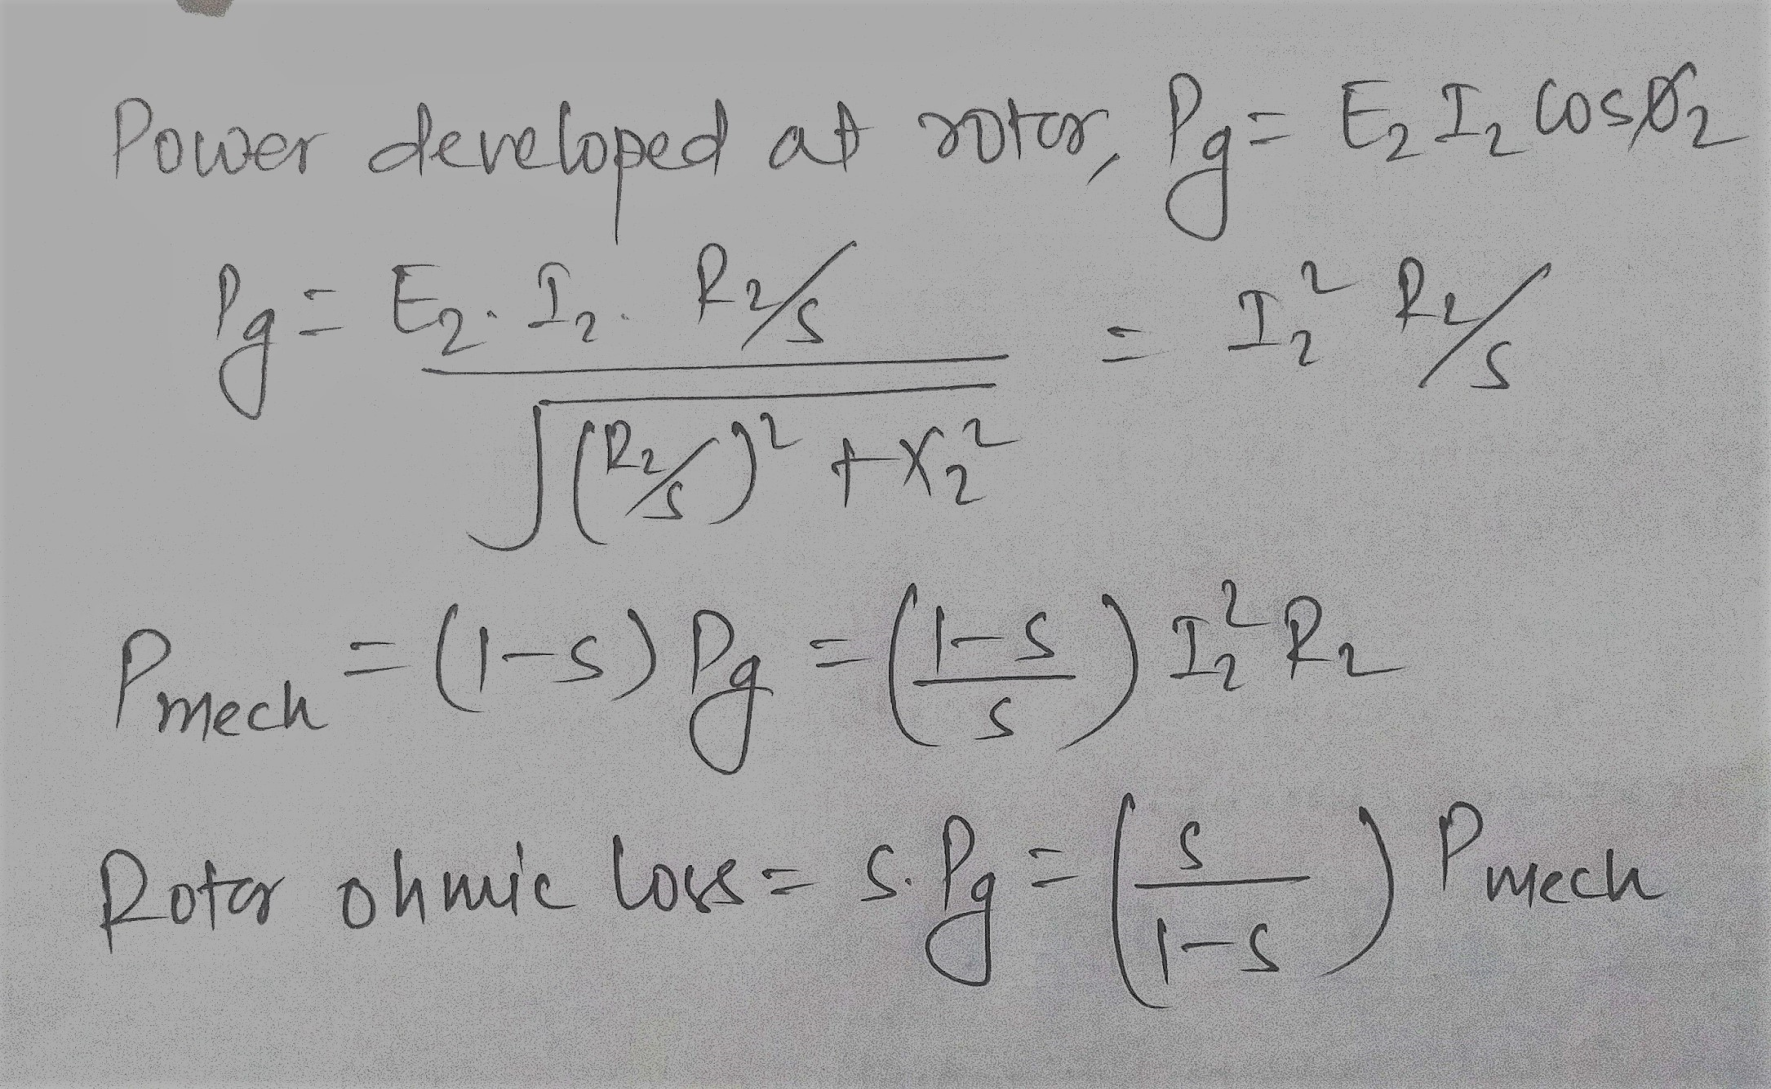 Power developed at rotor, Pg = E₂ I₂ cosφ₂
Pg = E₂. I₂. R₂/s / √((R₂/s)² + X₂²) = I₂² R₂/s
Pmech = (1-s) Pg = ((1-s)/s) I₂² R₂
Rotor ohmic loss = s. Pg = (s/(1-s)) Pmech